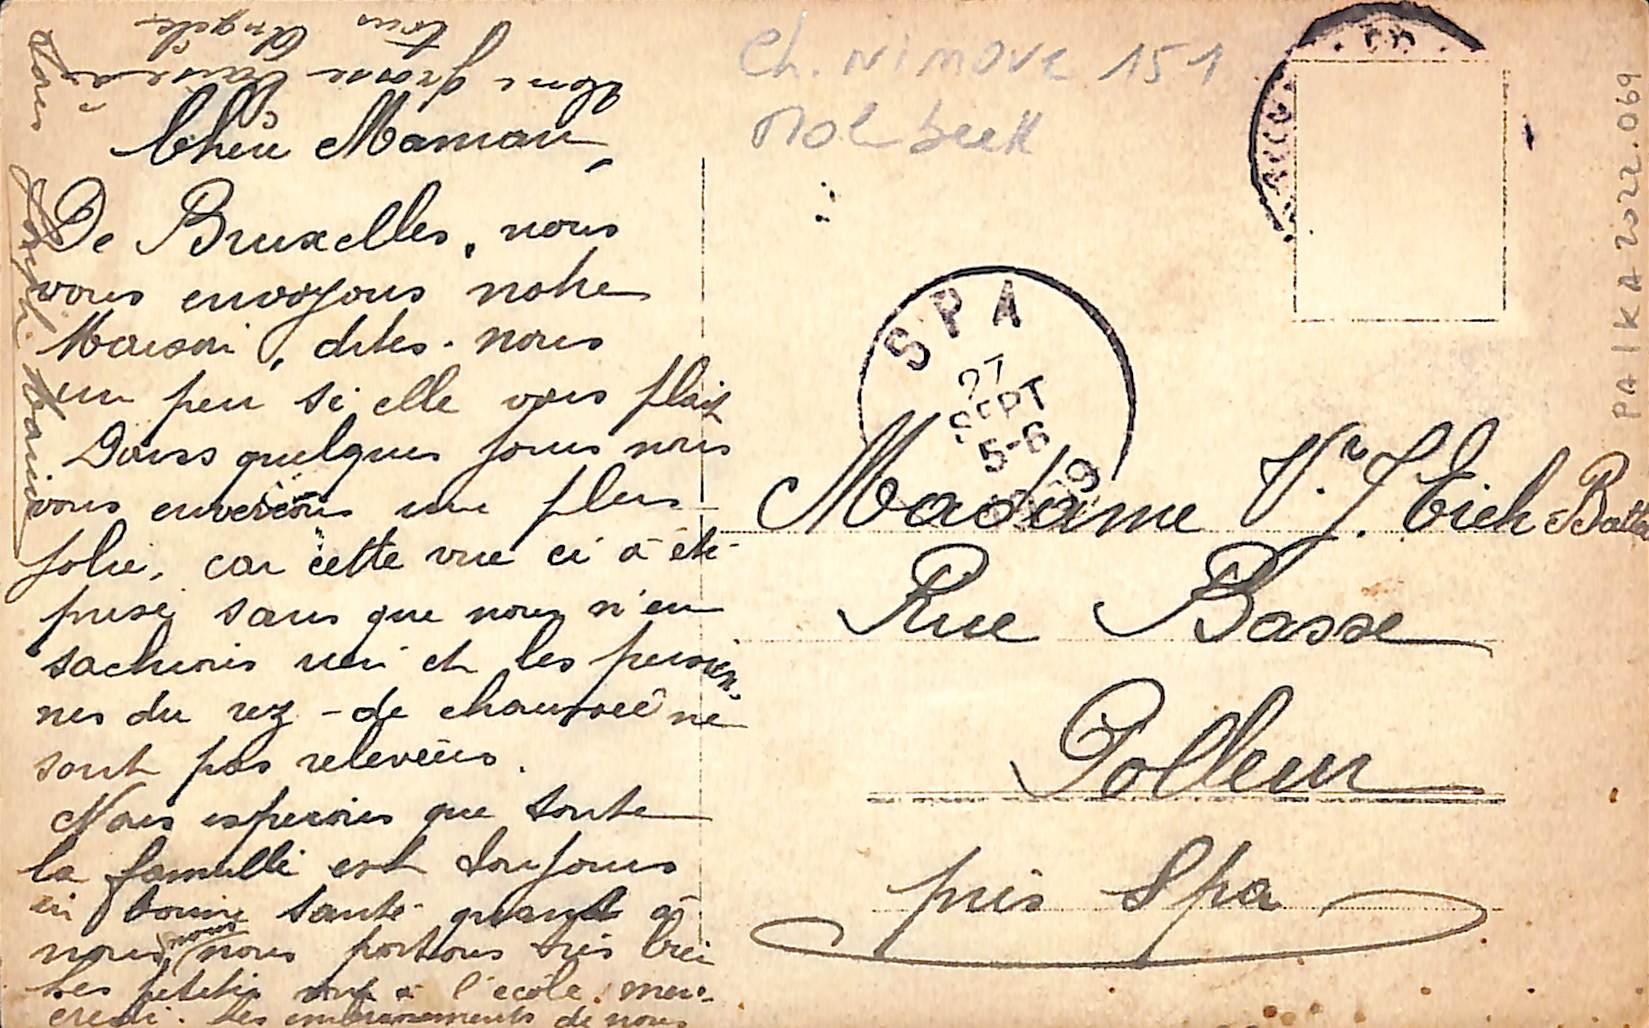 Chère Maman,
De Bruxelles, nous
vous envoyons notre
Maison, dites-nous
un peu si elle vous plait
Dans quelques jours nous
vous enverrons une plus
jolie, car cette vue ci à été
prise, sans que nous n'en
sachions rien et les persien-
nes du rez-de chaussée ne
sont pas relevées.
Nous espérons que toute
la famille est toujours
en bonne santé quand à
nous, nous nous portons très bien
Les petits vont à l'école mer-
credi. Les de nous
tous Angèle
Une grosse baise à
Joseph
Ch. Ninove 151
Molbeek
SPA
27
SEPT
5-6
Madame Ve J. Tich
Rue Basse
Polleur
près Spa
PAIKA2022.069